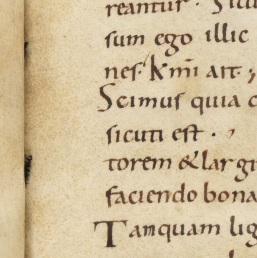 reantur. Sicu
sum ego illic
nes. Kmi ait;
Scimus quia c
sicuti est.
torem & largi
faciendo bona
Tamquam lig